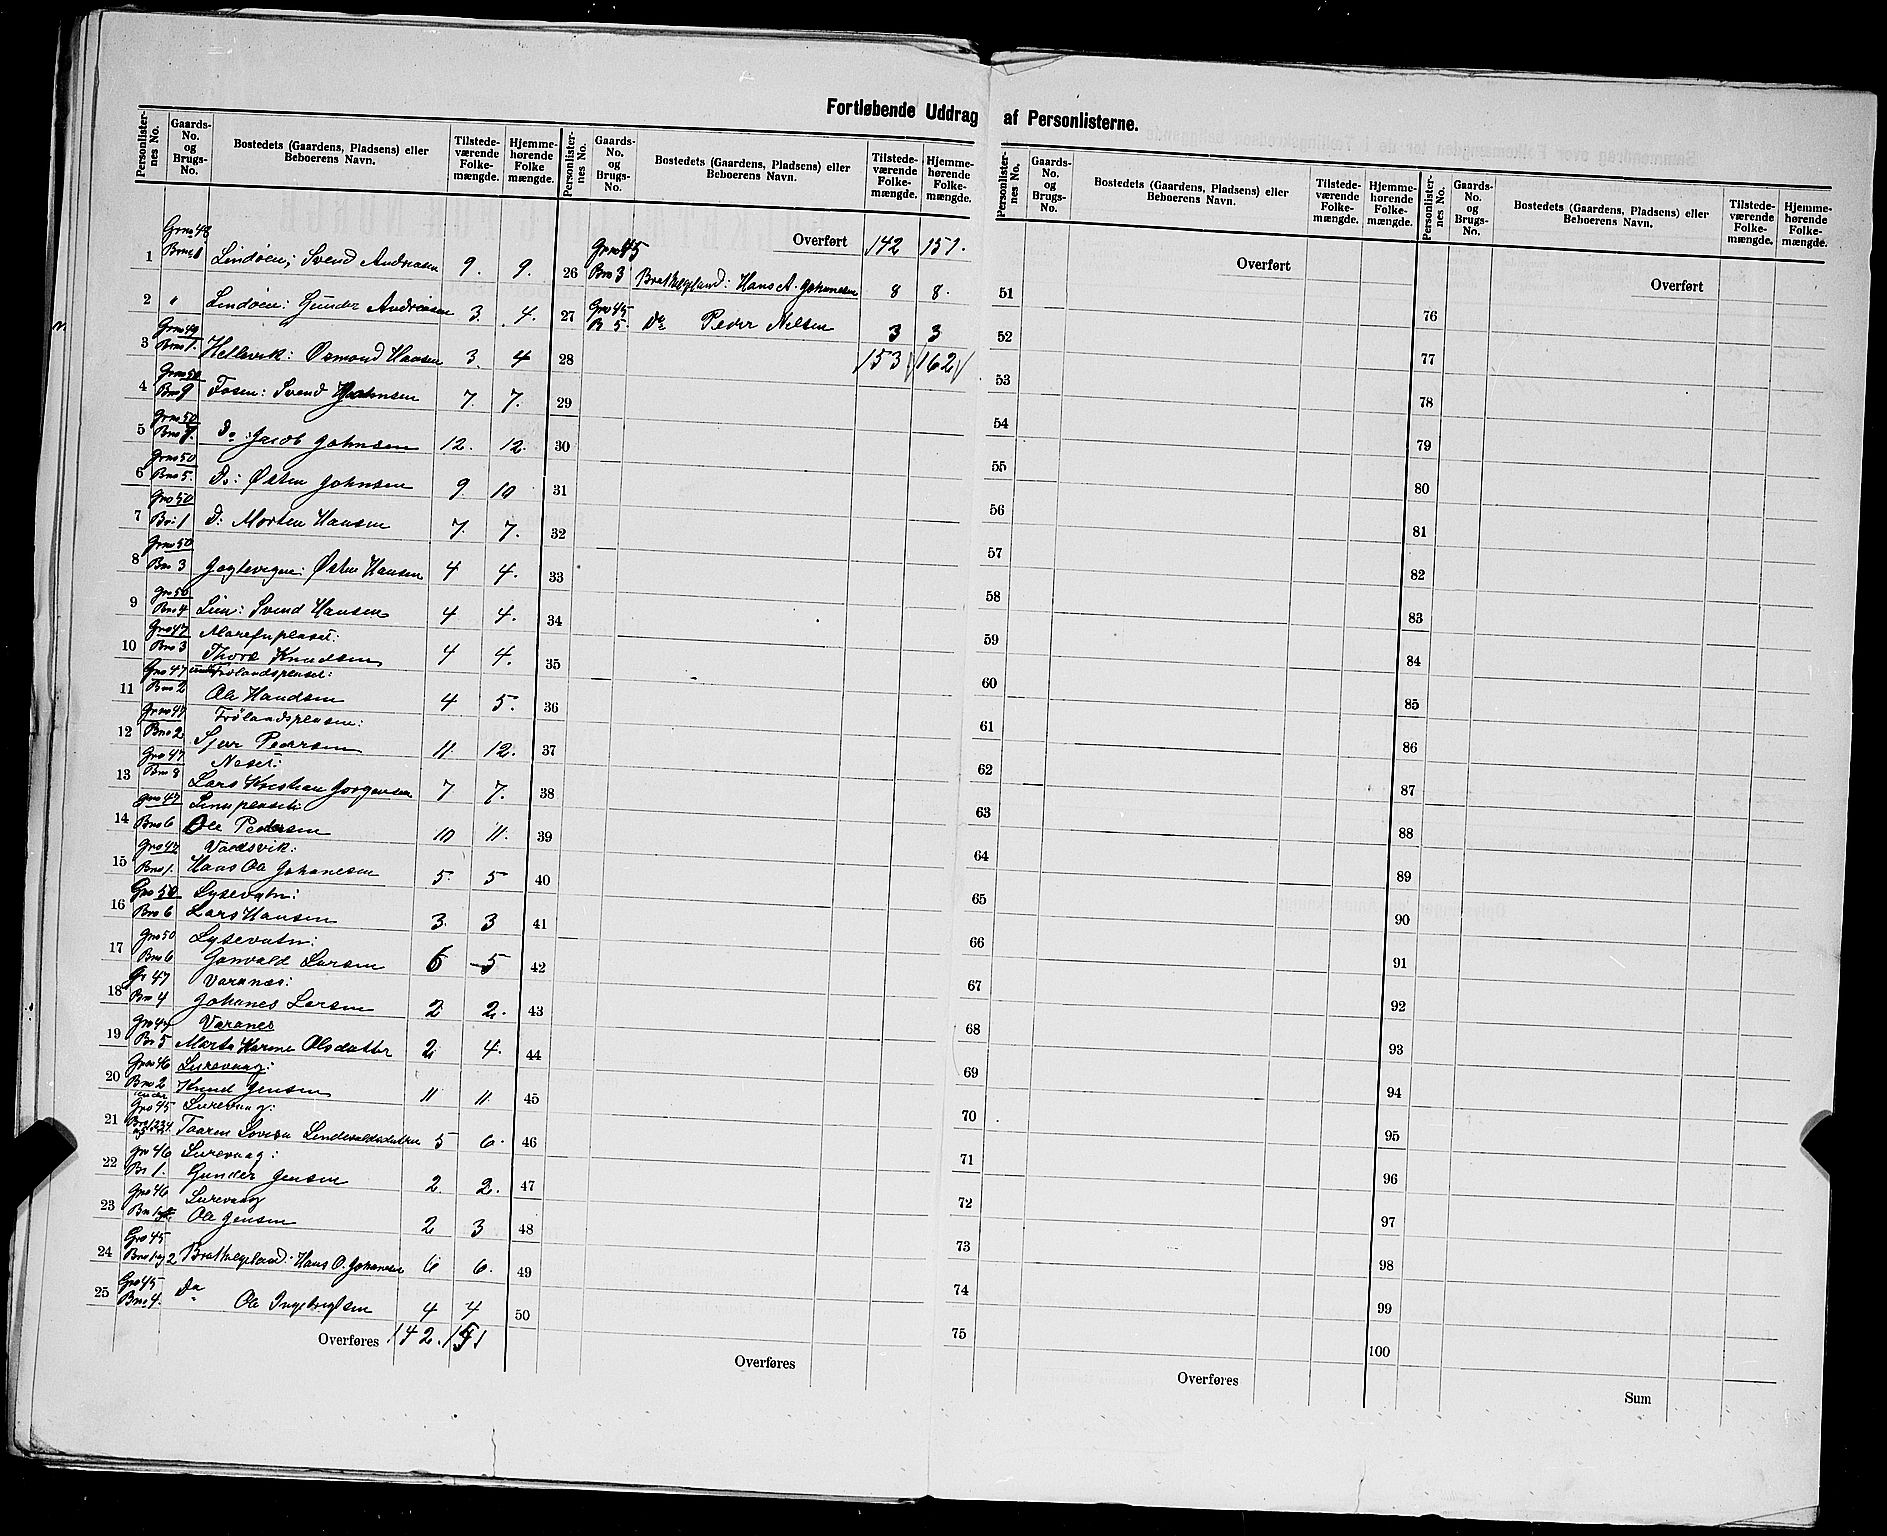 Fortløbende Uddrag af Personlisterne.
Personlister-nes No. Gaards-No. og Brugs-No. Bostedets (Gaardens, Pladsens) eller Beboerens Navn. Tilstede-værende Folke-mængde. Hjemme-hørende Folke mængde.
1 Grno 48 Brno 1 Lindöen; Svend Andreasen 9. 9.
2 " Lindöen: Gunder Andreasen 3. 4.
3 Grno 49 Brno 1. Hellevik: Osmond Hansen 3. 4
4 Grno 50 Bno 9 Fosen: Svend Johnsen 7. 7.
5 Grno 50 Bno 7. Do: Jacob Johnsen 12. 12.
6 Grno 50 Bno 5. D: Østen Johnsen 9. 10
7 Gno 50 Bno 1 D: Morten Hansen 7. 7.
8 Grno 50 Bno 3 Østen Hansen 4 4.
9 Gno 50 Bno 4 Lien: Svend Hansen 4 4.
10 Gno 47 Bno 3
Knudsen 4 4.
11 Gno 47 Bno 2
Ole Hansen 4 5.
12 Grno 47 Bno 2 Frölandspladsen:
Pedersen 11. 12.
13 Gno 47 Bno 8 Neset:
Lars Kristian Jørgensen 7 7.
14 Gno 47 Bno 6
Ole Pedersen 10 11.
15 Gno 47 Bno 1. Vaadsvik:
Hans Ole Johanesen 5. 5
16 Gno 50 Bno 6 Lysevatn:
Lars Hansen 3. 3
17 Gno 50 Bno 6 Lysevatn:
Larsen 6 5
18 Gr 47 Bno 4 Varanæs:
Johanes Larsen 2 2.
19 Gno 47 Bn 5 Varanes
Marte Karine Olsdatter 2 4.
20 Gno 46 Bno 2 Lurevaag:
Knud Jensen 11 11
21 under Gno 45 Lurevaag:
Taaren Lovise 5 6.
22 Gno 46 Bn 1. Lurevaag:
Gunder Jensen 2. 2.
23 Gno 46 Lurevaag
Ole Jensen 2 3
24 Gno 45 Bno 1 og 2 Brathelgeland: Hans O. Johansen 6 6.
25 Gno 45 Bno 4. Do Ole Ingebrigtsen 4 4
Overføres 142. 151
Personlister-nes No. Gaards-No. og Brugs-No. Bostedets (Gaardens, Pladsens) eller Beboerens Navn. Tilstede-værende Folke-mængde. Hjemme-hørende Folke-mængde.
Overført 142 151.
26 Gno 45 Bno 3 Brathelgeland: Hans A. Johansen 8 8.
27 Gno 45 B 5. Do Peder Nelsen 3 3
28 153 162
29
30
31
32
33
34
35
36
37
38
39
40
41
42
43
44
45
46
47
48
49
50
Overføres
Personlister-nes No. Gaards-No. og Brugs-No. Bostedets (Gaardens, Pladsens) eller Beboerens Navn. Tilstede-værende Folke-mængde. Hjemme-hørende Folke-mængde.
Overført
51
52
53
54
55
56
57
58
59
60
61
62
63
64
65
66
67
68
69
70
71
72
73
74
75
Overføres
Personlister-nes No. Gaards-No. og Brugs-No. Bostedets (Gaardens, Pladsens) eller Beboerens Navn. Tilstede-værende Folke-mængde. Hjemme-hørende Folke-mængde.
Overført
76
77
78
79
80
81
82
83
84
85
86
87
88
89
90
91
92
93
94
95
96
97
98
99
100
Sum